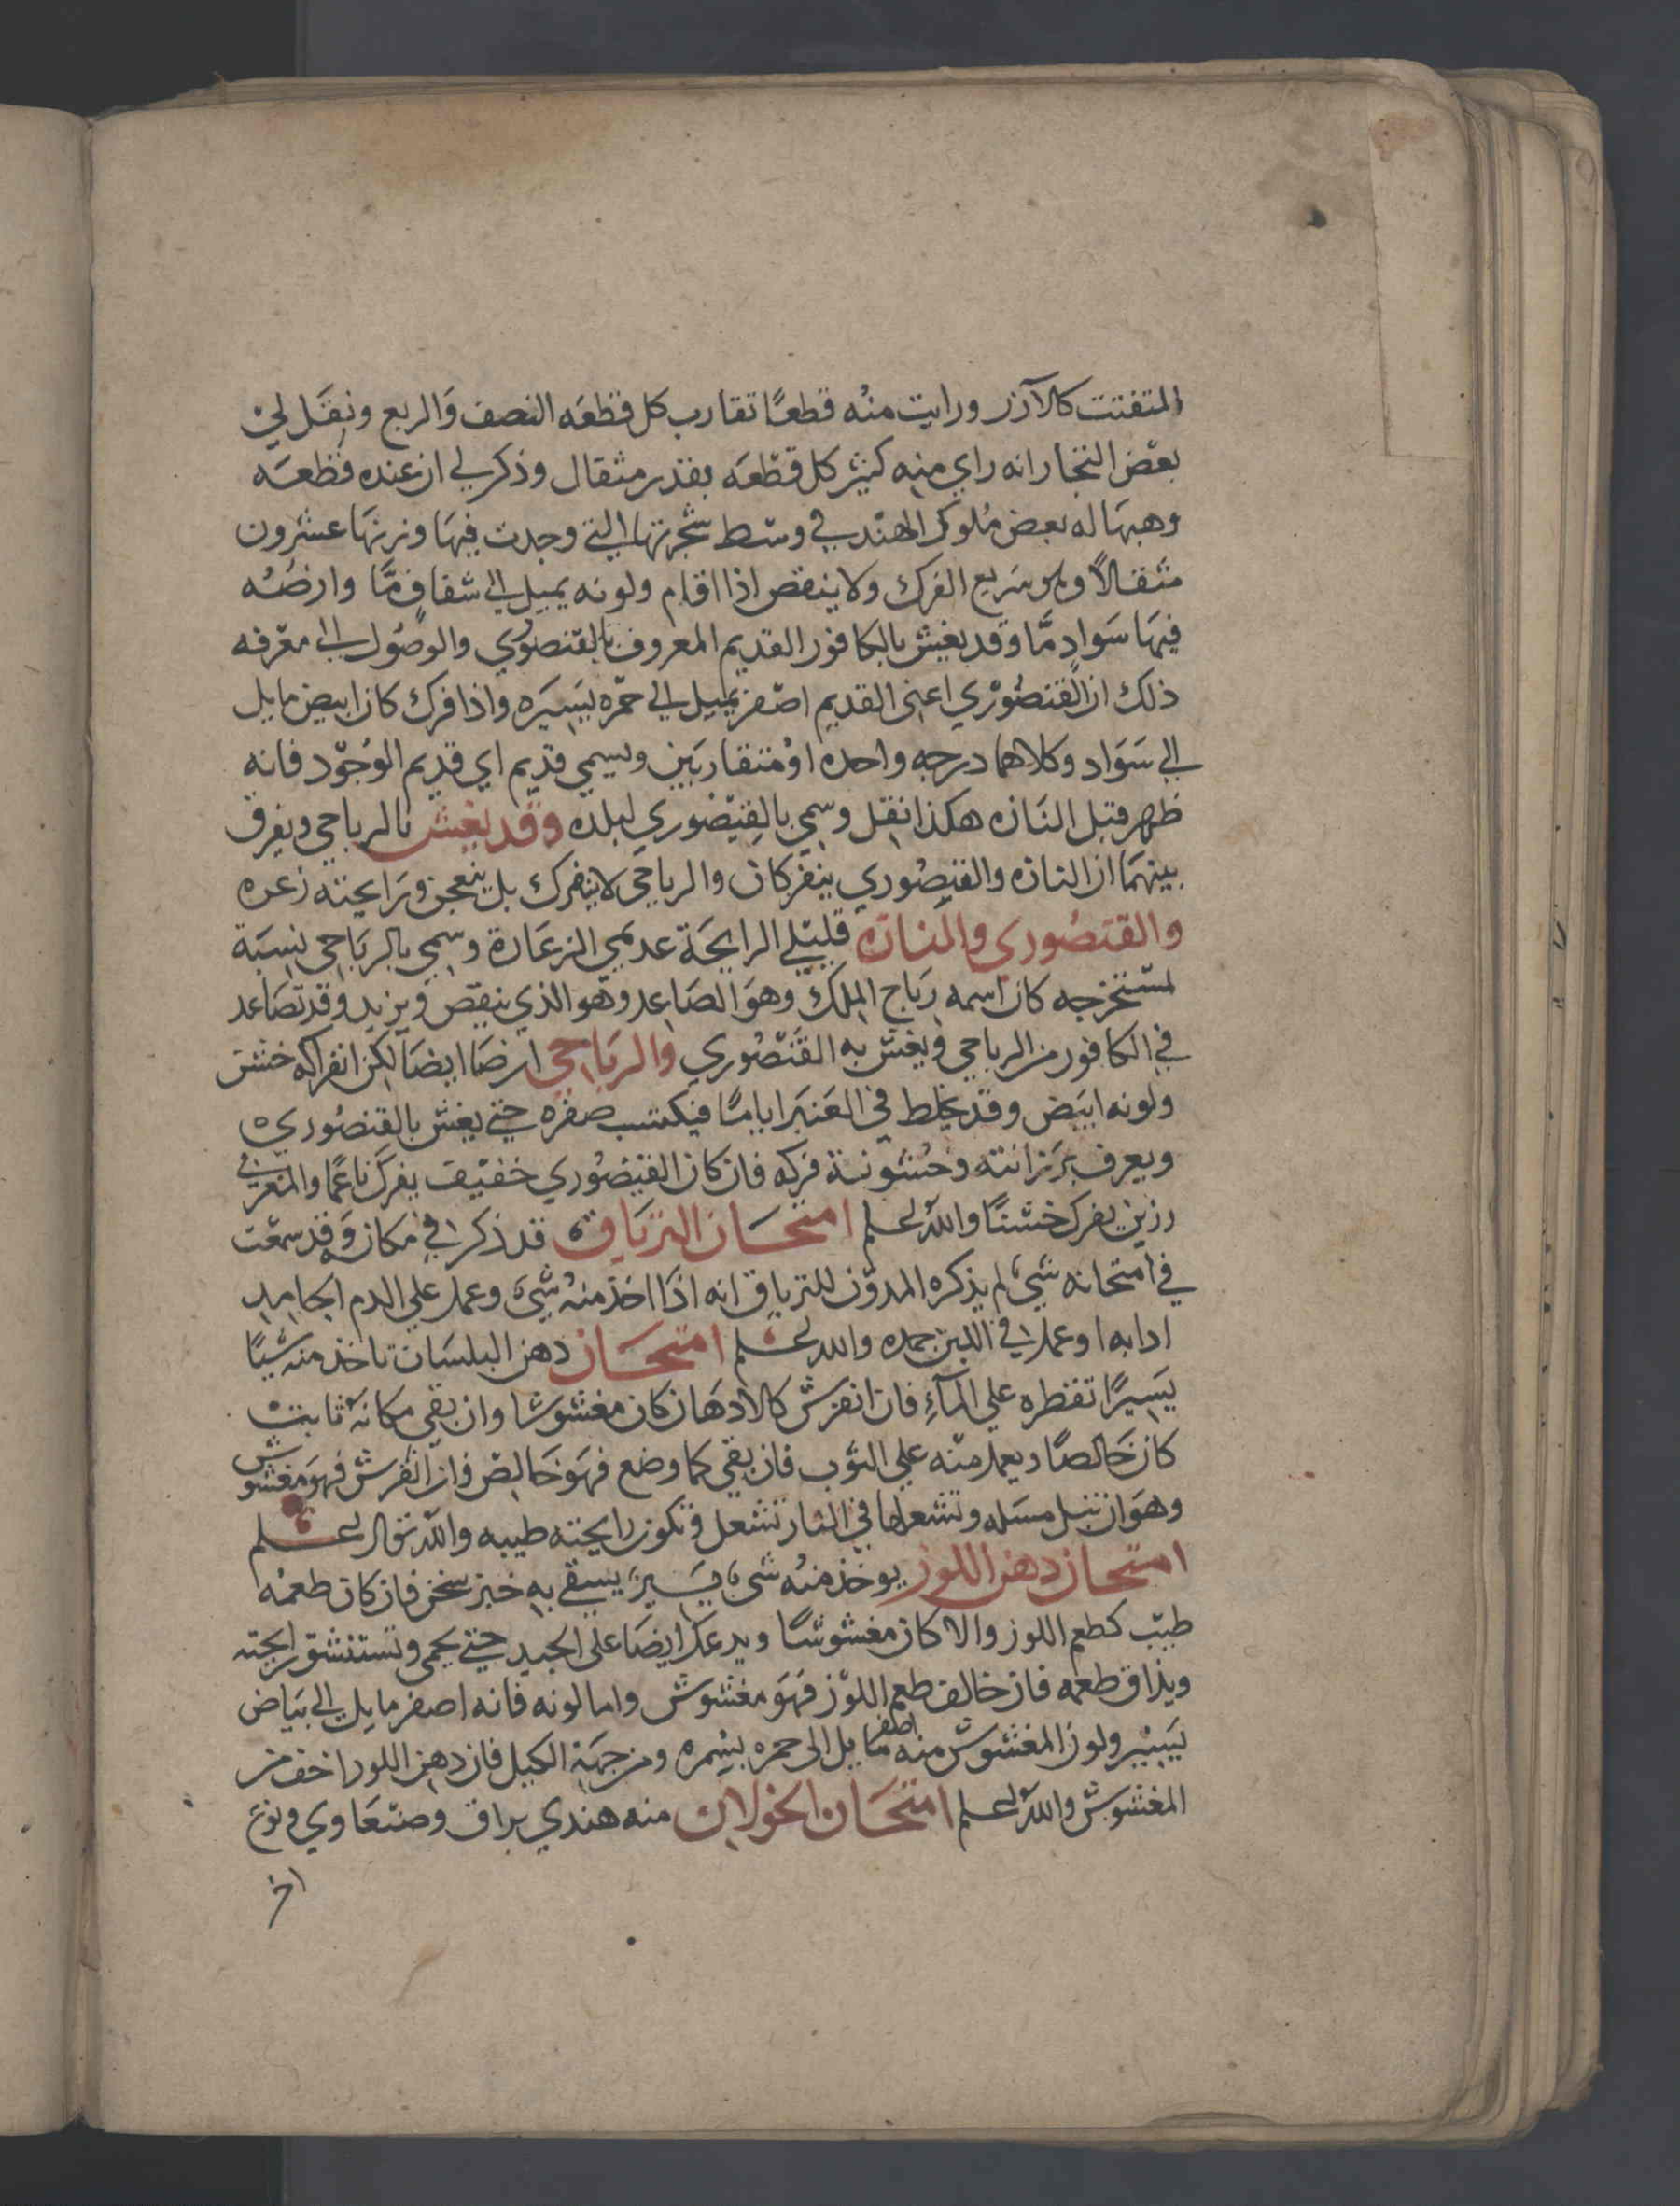 المتفتت كالآرز ورايت منُه قطعًا تقارب كل قطعَه النصف وَالربع ونقَل لي
بعض التجار انه راي منه كثير كل قطعَه بقدر مثقال وذكر لي ان عنده قطعَه
وهبهَا له بعض مُلوك الهند في وسَط شجرتها التي وجدت فيهَا وزنهَا عشرون
مثقالاً وهو سَريع الفرك ولا ينقص اذا اقام ولونه يميل الي شفاف مَّا وارضُه
فيهَا سَواد مَّا وقد يغش بالكافور القديم المعروف بالقنصوري والوصُول الي معرفه
ذلك ان القنصُوري اعني القديم اصفر يميل الي حمره يسَيَره واذا فرك كان ابيض مايل
الي سَوَاد وكلاهما درجه واحده اومُتقاربَين ويسمي قديم اي قديم الوُجوُد فانه
ظهر قبل النَازه هكذا نقل وسمي بالقيصُوري لبلده وقد يغش بالرباحي ويفرق
بينهمَا ان النازه والقنصُوري ينفركان والرباحي لا ينفرك بل ينعجن ورَايحته زعره
والقنصُوري والنازه قليلي الرايحَة عديمي الزعَارة وسمي بالربَاحي نسبَة
لمستخرجه كان اسمه رَباح الملك وهوَ الصَاعد وهو الذي ينقص ويزيد وقد تصَاعد
في الكافور من الرباحي ويغش به القنصُوري والربَاحي ارضَا ايضَا لكن انفراكه خشن
ولونه ابيَض وقد يخلط في العَنبَر ايامًا فيكتسب صفره حتي يغش بالقنصُوري
ويعرف برَزانته وخشونة فركه فان كان القيصُوري خفيف يفرك ناعمًا والمغربي
رزين يفرك خشنًا والله اعلم امتحَان الترياق قد ذكر في مكانه وقد سمعت
في امتحانه شيء لم يذكره المدوّن للترياق انه اذَا اخذ منهُ شيء وعمل علي الدم الجامد
ادابه اوعمل في اللبن جمده والله اعلم امتحَان دهن البلسَان تاخذ منه شيًا
يسيرًا تقطره علي المآءِ فان انفرش كالادهَان كان مغشوشا وان بقي مكانهُ ثابت
كان خَالصًا ويعمل منّه علي الثوب فان بقي كما وضع فهوَ خَالص وان انفرش فهوَ مغشوش
وهوَ ان تبل مسَله وتشعلها في النار تشعل وتكون رايحته طيبه والله تعالي اعلم
امتحان دهن اللوز يوخذ منُه شيء يسَير يسقي به خبز سخن فان كان طعمُه
طيّب كطعم اللوز والا كان مغشوشًا ويدعك ايضَا علي الجسد حتي يحمي وتستنشق رايحته
ويذاق طعمه فان خالف طعم اللوز فهَوَ مغشوش واما لونه فانه اصفر مايل الي بيَاض
يَسير ولون المغشوش منه اصفر مَايل الي حمره بسُمره ومن جهَة الكيل فان دهن اللوز اخف من
المغشوش والله اعلم امتحَان الخولان منه هندي براق وصنعَاوي ونوع
اخر